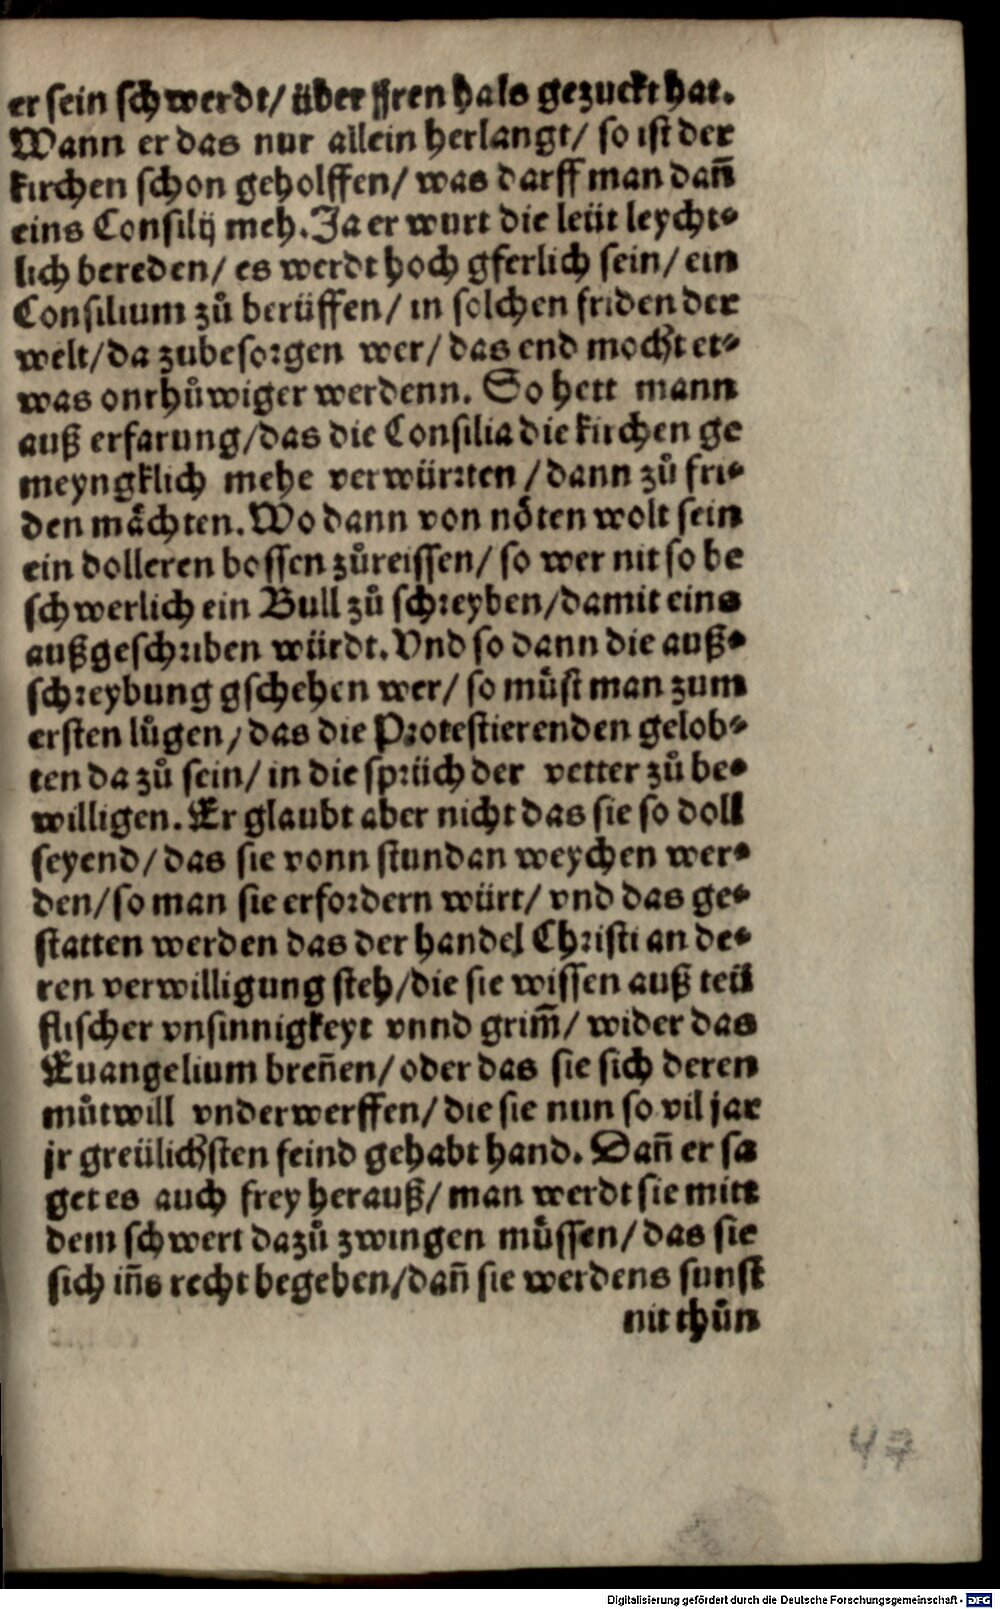 er sein schwerdt/ über jren hals gezuckt hat.
Wann er das nur allein herlangt/ so ist der
kirchen schon geholffen/ was darff man dañ
eins Consilij meh. Ja er wurt die leüt leycht⸗
lich bereden/ es werdt hoch gferlich sein/ ein
Consilium zů berüffen/ in solchen friden der
welt/ da zubesorgen wer/ das end mocht et⸗
was onrhůwiger werdenn. So hett mann
auß erfarung/ das die Consilia die kirchen ge
meyngklich mehe verwürrten / dann zů fri⸗
den mächten. Wo dann von nöten wolt sein
ein dolleren bossen zůreissen/ so wer nit so be
schwerlich ein Bull zů schreyben/ damit eins
außgeschriben würdt. Vnd so dann die auß⸗
schreybung gschehen wer/ so můst man zum
ersten lůgen/ das die Protestierenden gelob⸗
ten da zů sein/ in die sprüch der vetter zů be⸗
willigen. Er glaubt aber nicht das sie so doll
seyend/ das sie vonn stundan weychen wer⸗
den/ so man sie erfordern würt/ vnd das ge⸗
statten werden das der handel Christi an de⸗
ren verwilligung steh/ die sie wissen auß teü
flischer vnsinnigkeyt vnnd grim̃/ wider das
Euangelium breñen/ oder das sie sich deren
můtwill vnderwerffen/ die sie nun so vil jar
jr greülichsten feind gehabt hand. Dañ er sa
get es auch frey herauß/ man werdt sie mitt
dem schwert dazů zwingen müssen/ das sie
sich iñs recht begeben/ dañ sie werdens sunst
nit thůn
47
Digitalisierung gefördert durch die Deutsche Forschungsgemeinschaft - DFG